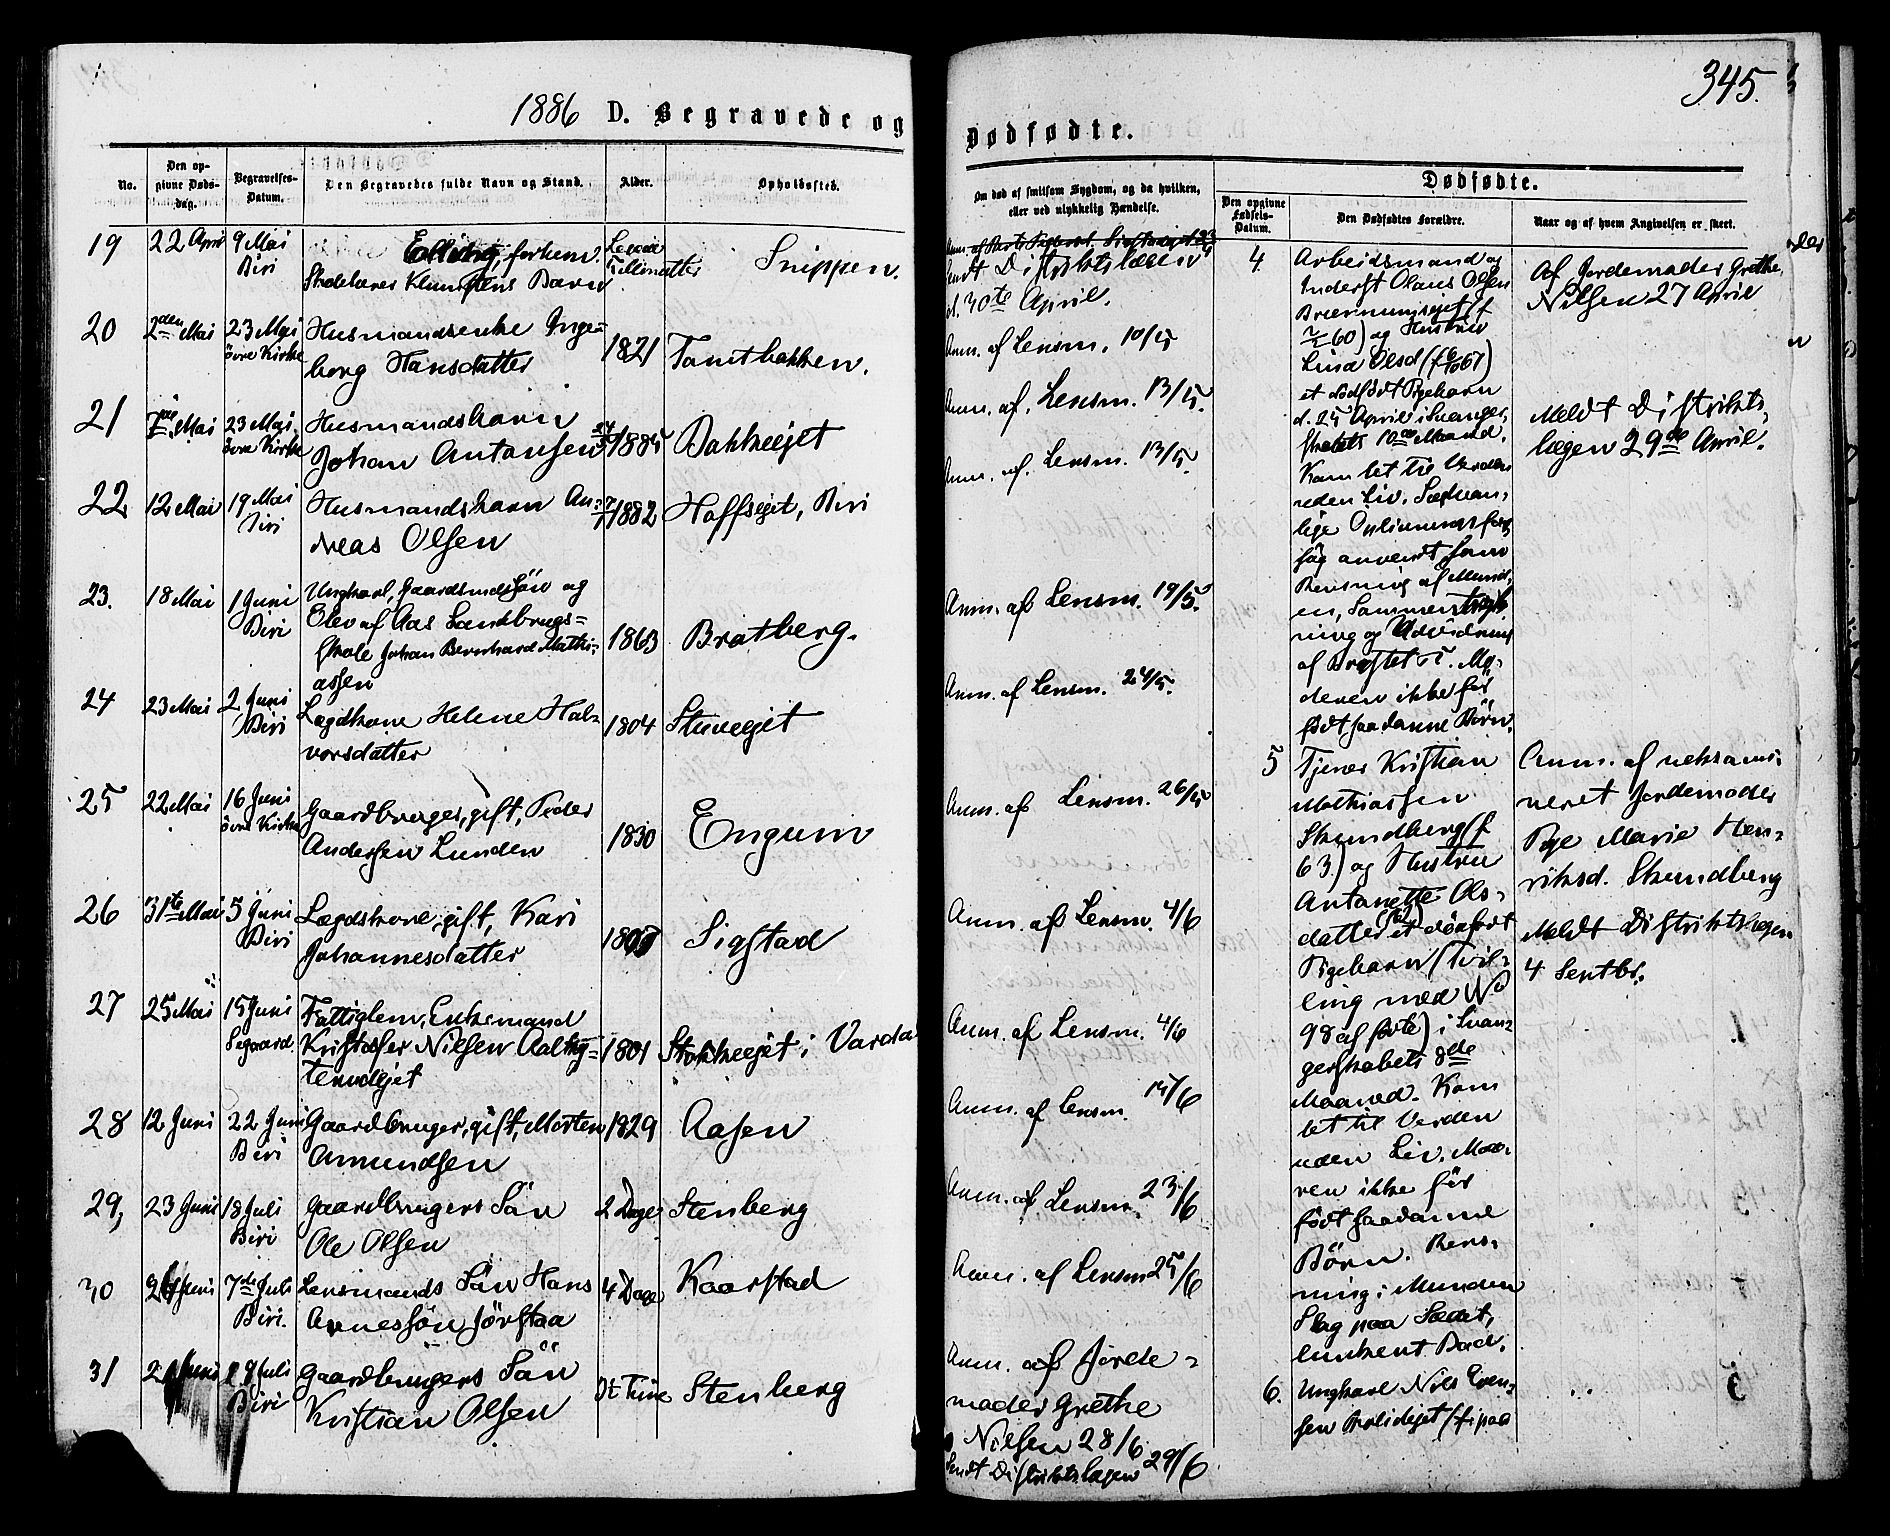 1886 D. Begravede og
Dødfødte.
345.
No.
Den op-
givne Døds-
dag.
Begravelses-
Datum.
Den Begravedes fulde Navn og Stand.
Alder.
Opholdssted.
Om død af smitsom Sygdom, og da hvilken,
eller ved ulykkelig Hændelse.
Dødfødte.
Den opgivne
Fødsels-
Datum.
Den Dødfødtes Forældre.
Naar og af hvem Angivelsen er skeet.
19 22 April 9 Mai
Biri
Skolelærer Barn
Snippen.
Distriktslægen
30te April.
20 2den Mai 23 Mai
övre Kirke
Husmandsenke Inge-
borg Hansdatter
1821 Tomtbakken.
Anm. af Lensm. 10/5
21 Mai 23 Mai
övre Kirke
Husmandsbarn
Johan Antonsen
1885 Bakkeejet
Anm. af. Lensm. 13/5.
22 12 Mai 19 Mai
Biri
Husmandsbarn An-
dreas Olsen
7/7 1882 Hoffsejet, Biri
Anm. af. Lensm. 13/5.
23. 18 Mai 1 Juni
Biri
Ungkarl, Gaardmands Sön og
Elev af Aas Landbrugs-
skole Johan Bernhard Mathi-
assen
1863 Bratberg.
Anm. af Lensm. 19/5.
24 23 Mai 2 Juni
Biri
Lægdkone Helene Hal-
vorsdatter
1804 Stuveejet
Anm. af Lensm. 24/5.
25 22 Mai 16 Juni
övre Kirke
Gaardbruger, gift, Peder
Andersen Lunden
1830 Engum
Anm. af Lensm. 26/5
26 31te Mai 5 Juni
Biri
Lægdskone, gift, Kari
Johannesdatter
Sigstad
Anm. af Lensm. 4/6
27 25 Mai 15 Juni
Segaard
Fattiglem, Enkemand
Kristofer Nilsen
1801 Stokkeejet i Vardal
Anm. af Lensm. 4/6
28 12 Juni 22 Juni
Biri
Gaardbruger, gift, Morten
Amundsen
1829 Aasen
Anm. af Lensm. 15/6
29, 23 Juni 18 Juli
Biri
Gaardbrugers Sön
Ole Olsen
2 Dage Stenberg
Anm. af Lensm. 23/6
30 Juni 7de Juli
Biri.
Lensmands Sön Hans
Arnessön Jörstaa
4 Dage Kaarstad
Anm. af Lensm 25/6
31 Juni 18 Juli
Biri
Gaardbrugers Sön
Kristian Olsen
Stenberg
Anm. af Jorde-
moder Grethe
Nilsen 28/6
Sendt Distriktslægen 29/6
4. Arbeidsmand og
Inderst Olaus Olsen
60) og Hustru
Lina Olsd.
et dödfödt Pigebarn
d. 25 April i Svanger-
skabets 10de Maaned.
Kom let til Verden
uden Liv. Sædvan-
lige Oplivningsfor-
søg anvendt som
Rensning af Mund-
en, Sammentryk-
ning og Udvidning
af Brystet. Mo-
deren ikke før
født saadanne Börn.
Af Jordemoder Grethe
Nilsen 27 April
Meldt Distrikts-
lægen 29de April.
5 Tjener Kristian
Mathiassen
Skundberg (f.
63.) og Hustru
Antonette Ols-
datter (62) et dødfødt
Pigebarn (Tvil-
ling med No
98 af fødte) i Svan-
gerskabets 8de
Maaned. Kom
let til Verden
uden Liv. Mode-
ren ikke før
født saadanne
Börn. Rens-
ning i Munden
Slag paa Sædet,
lunkent Bad.
Anm. af ueksami-
neret Jordemoder
Pige Marie Hen-
riksd. Skundberg
Meldt Distriktslægen
4 Septbr.
6. Ungkarl Nils Even-
sen